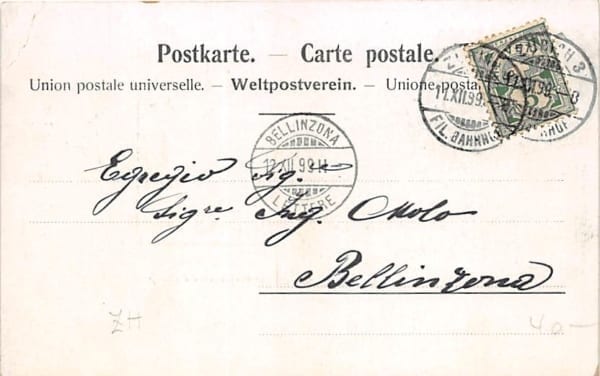 Postkarte. — Carte postale.
Union postale universelle. — Weltpostverein. — Unione posta
ZÜRICH 3
11.XII.99.
FIL. BAHNHOF
BELLINZONA
12.XII.99
LETTERE
Egregio sig.
Sigre Ing.
Bellinzona
ZH
40.–